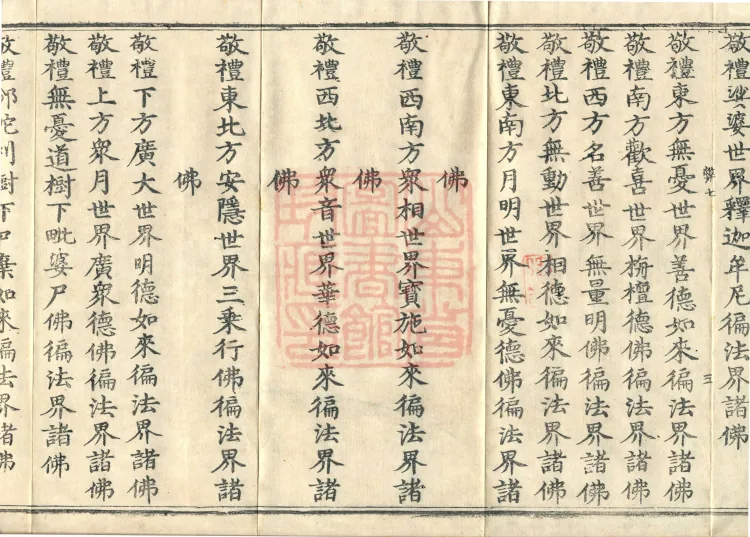 敬禮娑婆世界釋迦牟尼徧法界諸佛
敬禮東方無憂世界善德如來徧法界諸佛
敬禮南方歡喜世界栴檀德佛徧法界諸佛
敬禮西方名善世界無量明佛徧法界諸佛
敬禮北方無動世界相德如來徧法界諸佛
敬禮東南方月明世界無憂德佛徧法界諸
佛
敬禮西南方眾相世界寶施如來徧法界諸
佛
敬禮西北方眾音世界華德如來徧法界諸
佛
敬禮東北方安隱世界三乘行佛徧法界諸
佛
敬禮下方廣大世界明德如來徧法界諸佛
敬禮上方眾月世界廣眾德佛徧法界諸佛
敬禮無憂道樹下毗婆尸佛徧法界諸佛
敬禮邠陀利樹下式棄如來徧法界諸佛